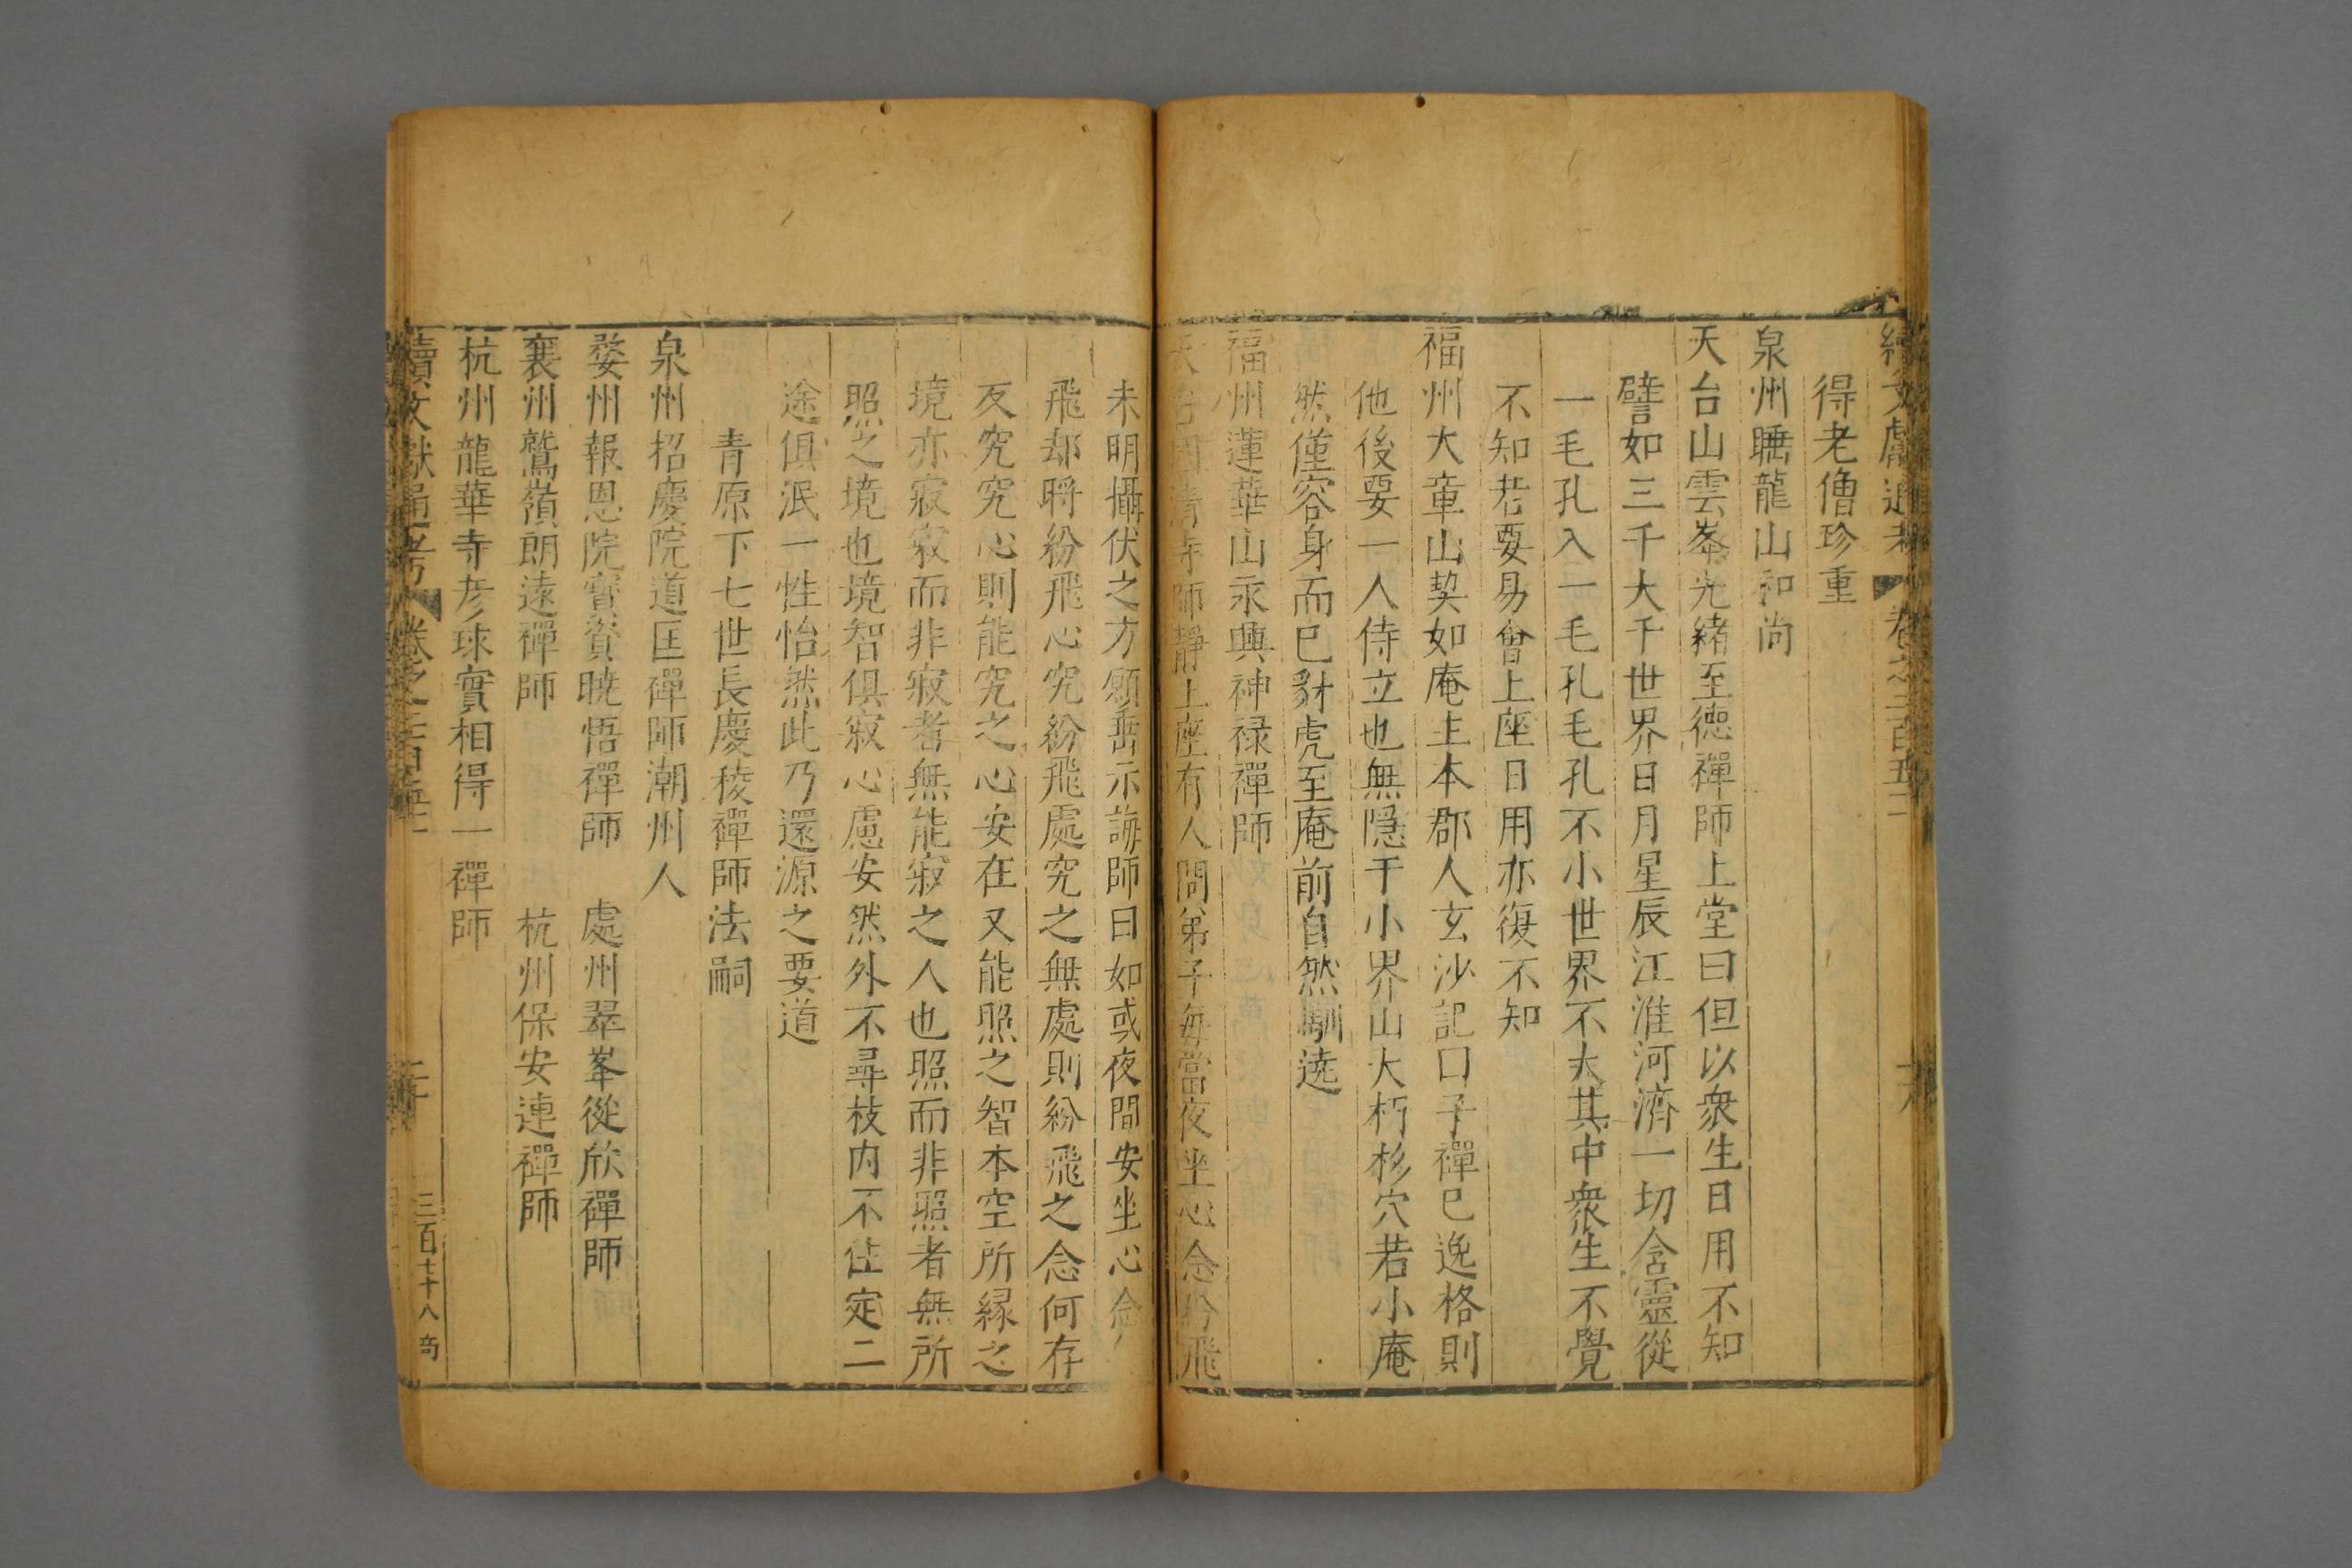 續文獻通考 卷之二百五十二
得老僧珍重
泉州睡龍山和尚
天台山雲峯光緒至德禪師上堂曰但以衆生日用不知
譬如三千大千世界日月星辰江淮河濟一切含靈從
一毛孔入一毛孔毛孔不小世界不大其中衆生不覺
不知若要易會上座日用亦復不知
福州大章山契如庵主本郡人玄沙記曰子禪已逸格則
他後要一人侍立也無隱于小界山大朽杉穴若小庵
然僅容身而已豺虎至庵前自然馴遶
福州蓮華山永興神祿禪師
天台國清寺師靜上座有人問弟子每當夜坐心念紛飛
未明攝伏之方願垂示誨師曰如或夜間安坐心念
飛却將紛飛心究紛飛處究之無處則紛飛之念何存
反究究心則能究之心安在又能照之智本空所緣之
境亦寂寂而非寂者無能寂之人也照而非照者無所
照之境也境智俱寂心慮安然外不尋枝內不住定二
途俱泯一性怡然此乃還源之要道
青原下七世長慶稜禪師法嗣
泉州招慶院道匡禪師潮州人
婺州報恩院寶資曉悟禪師 處州翠峯從欣禪師
襄州鷲嶺明遠禪師 杭州保安連禪師
杭州龍華寺彥球實相得一禪師
續文獻通考 卷之二百五十二 二十 三百七十八 奇